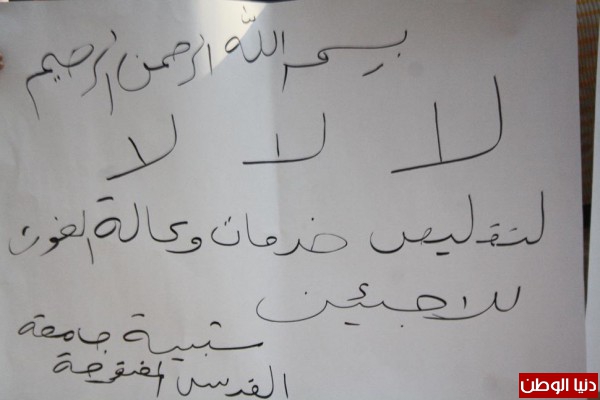 بسم الله الرحمن الرحيم
لا لا لا
لتقليص خدمات وكالة الغوث
للاجئين
شبيبة جامعة
القدس المفتوحة
دنيا الوطن